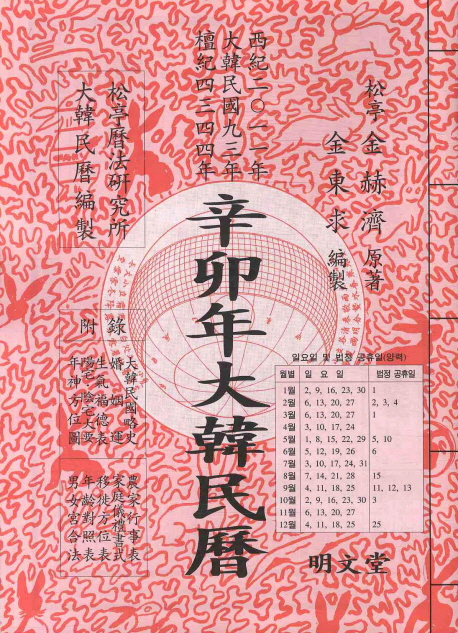 西紀二〇一一年
大韓民國九三年
檀紀四三四四年
松亭 金赫濟 原著
金東求 編製
松亭曆法硏究所
大韓民曆編製
辛卯年大韓民曆
附錄
大韓民國略史
婚姻運
生氣福德表
陽宅·陰宅大要
年神方位圖
農家行事表
家庭儀禮書式
移徙方位表
年齡對照表
男女宮合法
일요일 및 법정 공휴일(양력)
월별 일 요 일 법정 공휴일
1월 2, 9, 16, 23, 30 1
2월 6, 13, 20, 27 2, 3, 4
3월 6, 13, 20, 27 1
4월 3, 10, 17, 24
5월 1, 8, 15, 22, 29 5, 10
6월 5, 12, 19, 26 6
7월 3, 10, 17, 24, 31
8월 7, 14, 21, 28 15
9월 4, 11, 18, 25 11, 12, 13
10월 2, 9, 16, 23, 30 3
11월 6, 13, 20, 27
12월 4, 11, 18, 25 25
明文堂